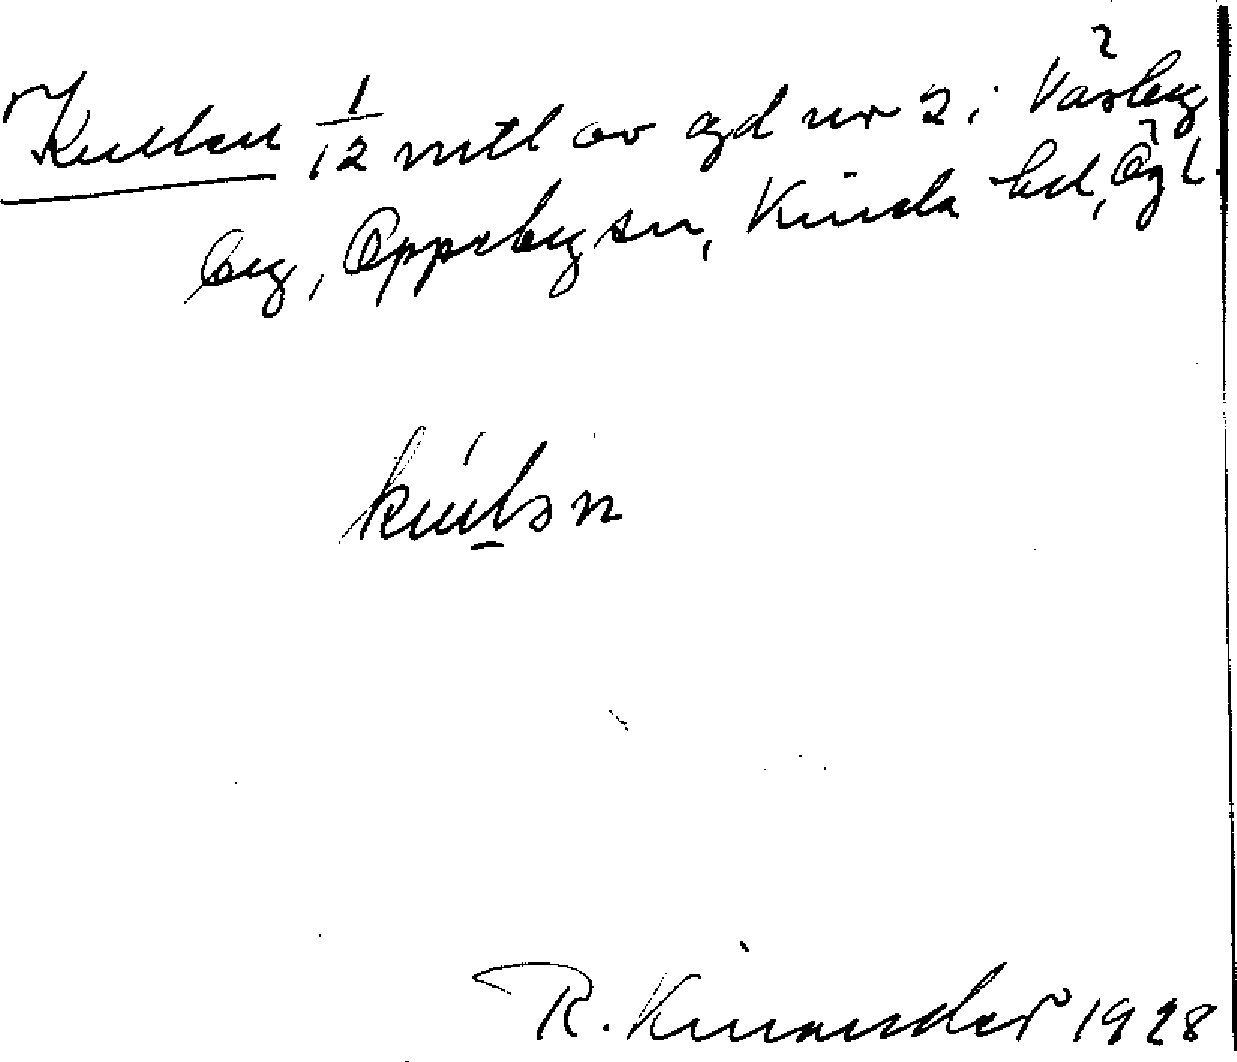 Kullen 1/12 mtl av gd nr 2 i Väsby
by, Oppeby sn, Kinda hd, Ög l.
kúl̠ən
R. Kinander 1928